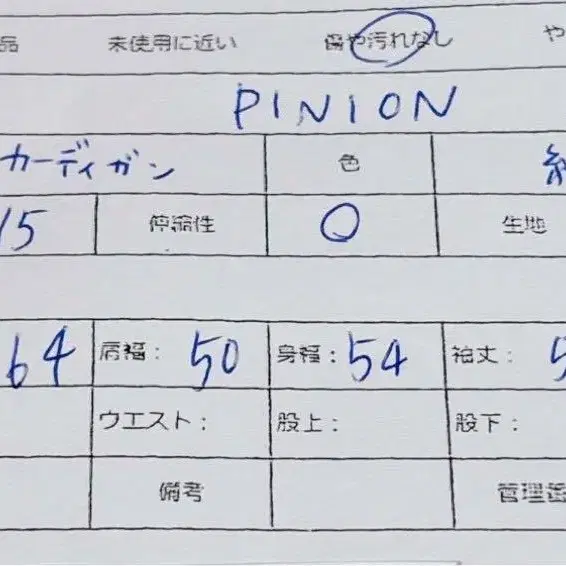 品 未使用に近い 傷や汚れなし や
PINION
カーディガン 色
15 伸縮性 ○ 生地
64 肩幅: 50 身幅: 54 袖丈: 5
ウエスト: 股上: 股下:
備考 管理番